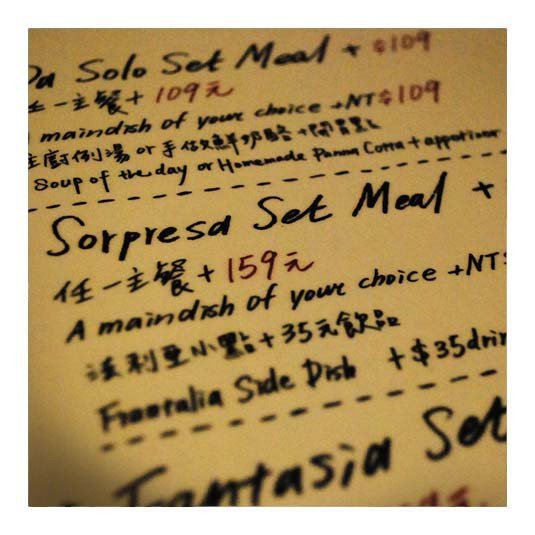 Da Solo Set Meal + $109
任一主餐 + 109元
A maindish of your choice + NT$109
主廚例湯 or 手做鮮奶酪 + 開胃點
Soup of the day or Homemade Panna Cotta + appetizer
Sorpresa Set Meal +
任一主餐 + 159元
A maindish of your choice + NT$
法利亞小點 + 35元飲品
Frantalia Side Dish + $35 drin
Frantasia Set